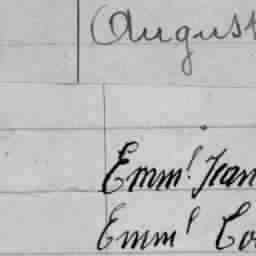 August
Emm! Jean
Emm! Co